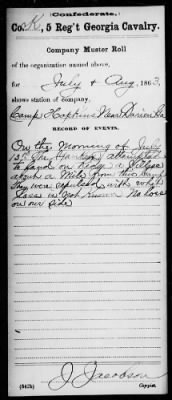 Confederate.
Co. K, 5 Reg't Georgia Cavalry.
Company Muster Roll
of the organization named above,
for July & Aug, 1863,
shows station of company,
Camp Hopkins Near Darien Ga
RECORD OF EVENTS.
On the Morning of July
15" The Yankees attempted
to land on Ridge a place
about a Mile from this camp
They were repulsed with what
loss is not known No loss
on our side
J. Jacobson
Copyist.